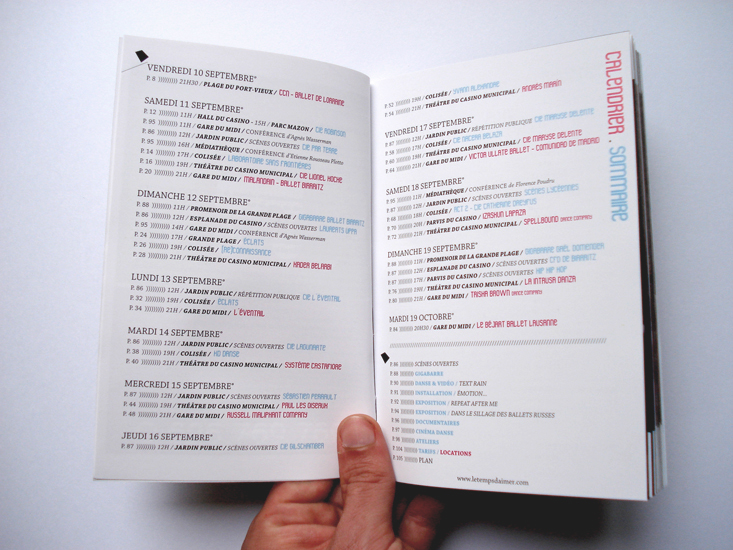 VENDREDI 10 SEPTEMBRE*
P. 8 )))))))))) 21H30 / PLAGE DU PORT-VIEUX / CCN - BALLET DE LORRAINE
SAMEDI 11 SEPTEMBRE*
P. 12 )))))))))) 11H / HALL DU CASINO - 15H / PARC MAZON / CIE ROBINSON
P. 95 )))))))))) 11H / GARE DU MIDI / CONFÉRENCE d'Agnès Wasserman
P. 86 )))))))))) 12H / JARDIN PUBLIC / SCÈNES OUVERTES CIE PAR TERRE
P. 95 )))))))))) 16H / MÉDIATHÈQUE / CONFÉRENCE d'Etienne Rousseau Plotto
P. 14 )))))))))) 17H / COLISÉE / LABORATOIRE SANS FRONTIÈRES
P. 16 )))))))))) 19H / THÉÂTRE DU CASINO MUNICIPAL / CIE LIONEL HOCHE
P. 20 )))))))))) 21H / GARE DU MIDI / MALANDAIN - BALLET BIARRITZ
DIMANCHE 12 SEPTEMBRE*
P. 88 )))))))))) 11H / PROMENOIR DE LA GRANDE PLAGE / GIGABARRE BALLET BIARRITZ
P. 86 )))))))))) 12H / ESPLANADE DU CASINO / SCÈNES OUVERTES LAURENTS UPPA
P. 95 )))))))))) 14H / GARE DU MIDI / CONFÉRENCE d'Agnès Wasserman
P. 24 )))))))))) 17H / GRANDE PLAGE / ÉCLATS
P. 26 )))))))))) 19H / COLISÉE / [RE]CONNAISSANCE
P. 28 )))))))))) 21H / THÉÂTRE DU CASINO MUNICIPAL / KADER BELARBI
LUNDI 13 SEPTEMBRE*
P. 86 )))))))))) 12H / JARDIN PUBLIC / RÉPÉTITION PUBLIQUE CIE L'ÉVENTAIL
P. 32 )))))))))) 19H / COLISÉE / ÉCLATS
P. 34 )))))))))) 21H / GARE DU MIDI / L'ÉVENTAIL
MARDI 14 SEPTEMBRE*
P. 86 )))))))))) 12H / JARDIN PUBLIC / SCÈNES OUVERTES CIE LAGUNARTE
P. 38 )))))))))) 19H / COLISÉE / KD DANSE
P. 40 )))))))))) 21H / THÉÂTRE DU CASINO MUNICIPAL / SYSTÈME CASTAFIORE
MERCREDI 15 SEPTEMBRE*
P. 87 )))))))))) 12H / JARDIN PUBLIC / SCÈNES OUVERTES SÉBASTIEN PERRAULT
P. 44 )))))))))) 19H / THÉÂTRE DU CASINO MUNICIPAL / PAUL LES OISEAUX
P. 48 )))))))))) 21H / GARE DU MIDI / RUSSELL MALIPHANT COMPANY
JEUDI 16 SEPTEMBRE*
P. 87 )))))))))) 12H / JARDIN PUBLIC / SCÈNES OUVERTES CIE GILSCHAMBER
P. 52 )))))))))) 19H / COLISÉE / SYLVAIN ALEXANDRE
P. 54 )))))))))) 21H / THÉÂTRE DU CASINO MUNICIPAL / ANDRÉS MARÍN
VENDREDI 17 SEPTEMBRE*
12H / JARDIN PUBLIC / RÉPÉTITION PUBLIQUE CIE MARYSE DELENTE
17H / COLISÉE / CIE NACERA BELAZA
P. 60 )))))))))) 19H / THÉÂTRE DU CASINO MUNICIPAL / CIE MARYSE DELENTE
P. 64 )))))))))) 21H / GARE DU MIDI / VICTOR ULLATE BALLET - COMUNIDAD DE MADRID
SAMEDI 18 SEPTEMBRE*
P. 95 )))))))))) 11H / MÉDIATHÈQUE / CONFÉRENCE de Florence Poudru
P. 87 )))))))))) 12H / JARDIN PUBLIC / SCÈNES OUVERTES SCÈNES LYCÉENNES
P. 68 )))))))))) COLISÉE / ACT 2 - CIE CATHERINE DREYFUS
P. 70 )))))))))) PARVIS DU CASINO / IZASKUN LAPAZA
P. 72 )))))))))) 21H / THÉÂTRE DU CASINO MUNICIPAL / SPELLBOUND DANCE COMPANY
DIMANCHE 19 SEPTEMBRE*
P. 88 )))))))))) 11H / PROMENOIR DE LA GRANDE PLAGE / GIGABARRE GAËL DOMENGER
P. 87 )))))))))) 12H / ESPLANADE DU CASINO / SCÈNES OUVERTES CFD DE BIARRITZ
P. 87 )))))))))) 17H / PARVIS DU CASINO / SCÈNES OUVERTES HIP HIP HOP
P. 76 )))))))))) 19H / THÉÂTRE DU CASINO MUNICIPAL / LA INTRUSA DANZA
P. 80 )))))))))) 21H / GARE DU MIDI / TRISHA BROWN DANCE COMPANY
MARDI 19 OCTOBRE*
P. 84 )))))))))) 20H30 / GARE DU MIDI / LE BÉJART BALLET LAUSANNE
P. 86 )))))))))) SCÈNES OUVERTES
P. 88 )))))))))) GIGABARRE
P. 90 )))))))))) DANSE & VIDÉO / TEXT RAIN
P. 91 )))))))))) INSTALLATION / ÉMOTION...
P. 92 )))))))))) EXPOSITION / REPEAT AFTER ME
P. 94 )))))))))) EXPOSITION / DANS LE SILLAGE DES BALLETS RUSSES
P. 96 )))))))))) DOCUMENTAIRES
P. 97 )))))))))) CINÉMA DANSE
P. 98 )))))))))) ATELIERS
P. 104 )))))))))) TARIFS / LOCATIONS
P. 105 )))))))))) PLAN
www.letempsdaimer.com
CALENDRIER . SOMMAIRE